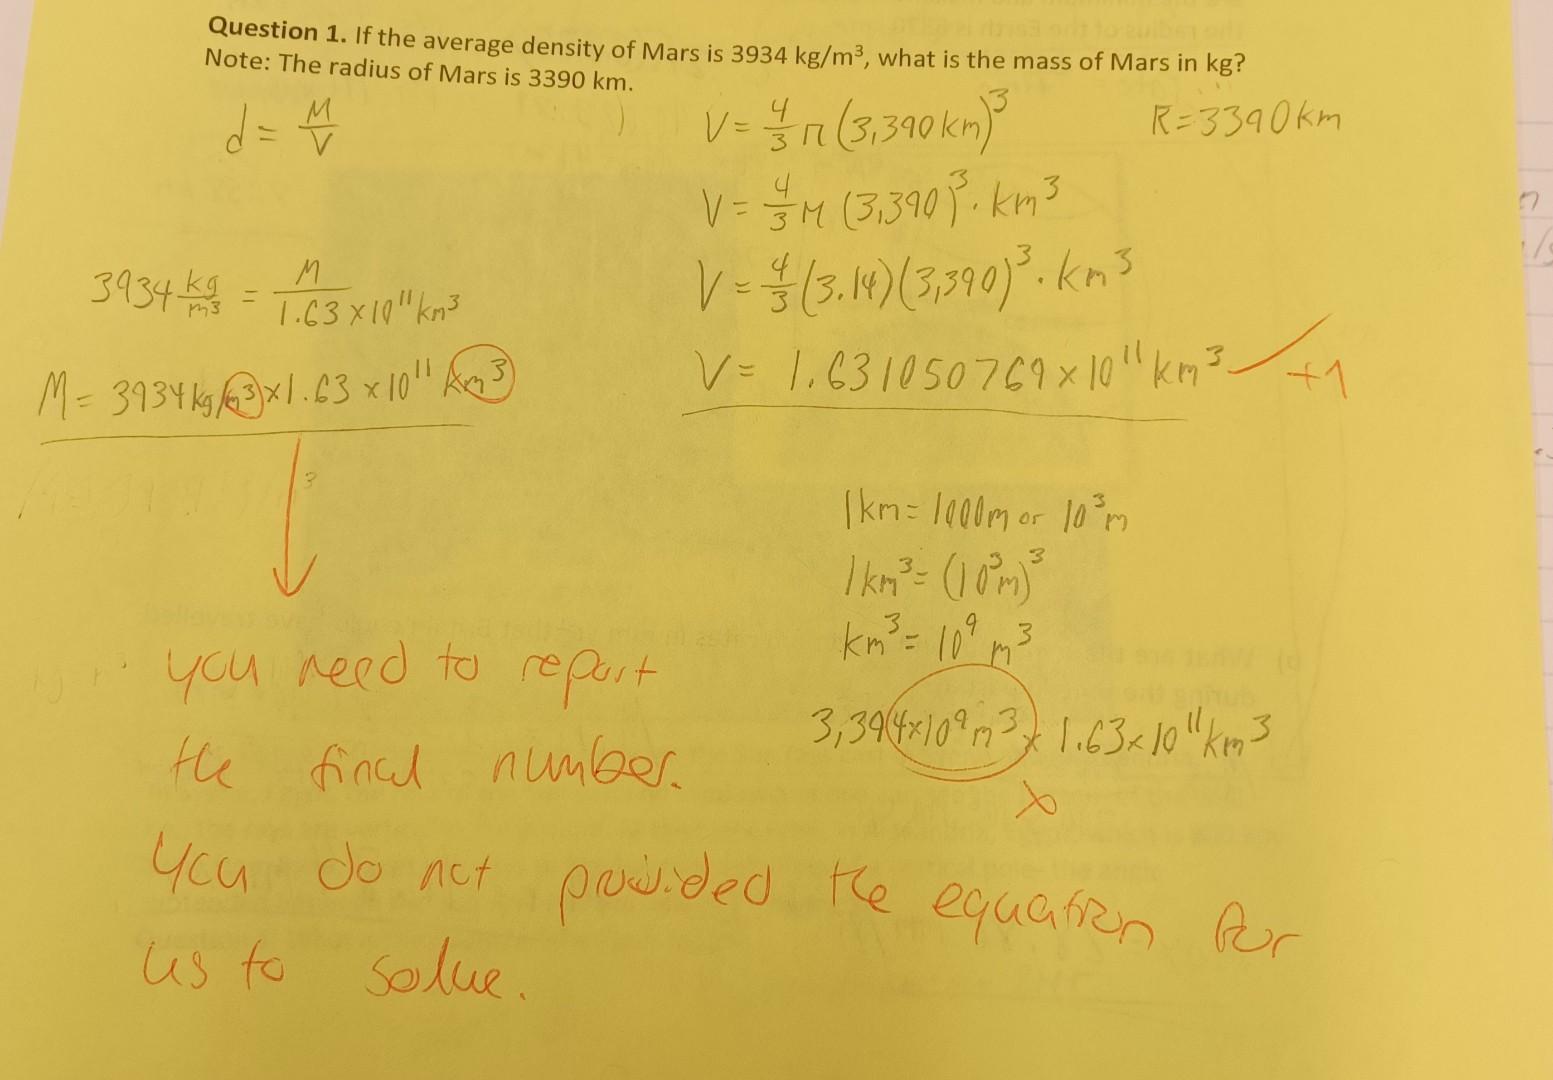 Question 1. If the average density of Mars is 3934 kg/m³, what is the mass of Mars in kg?
Note: The radius of Mars is 3390 km.
d = M/V
V = 4/3 π (3,390 km)³
R = 3390 km
V = 4/3 M (3,390)³ · km³
V = 4/3 (3.14)(3,390)³ · km³
V = 1.631050769 × 10¹¹ km³
+1
3934 kg/m³ = M/1.63 × 10¹¹ km³
M = 3934 kg/m³ × 1.63 × 10¹¹ km³
1 km = 1000m or 10³m
1 km³ = (10³m)³
km³ = 10⁹ m³
3,394×10⁹ m³ × 1.63×10¹¹ km³
you need to report
the final number.
you do not provided the equation for
us to solve.